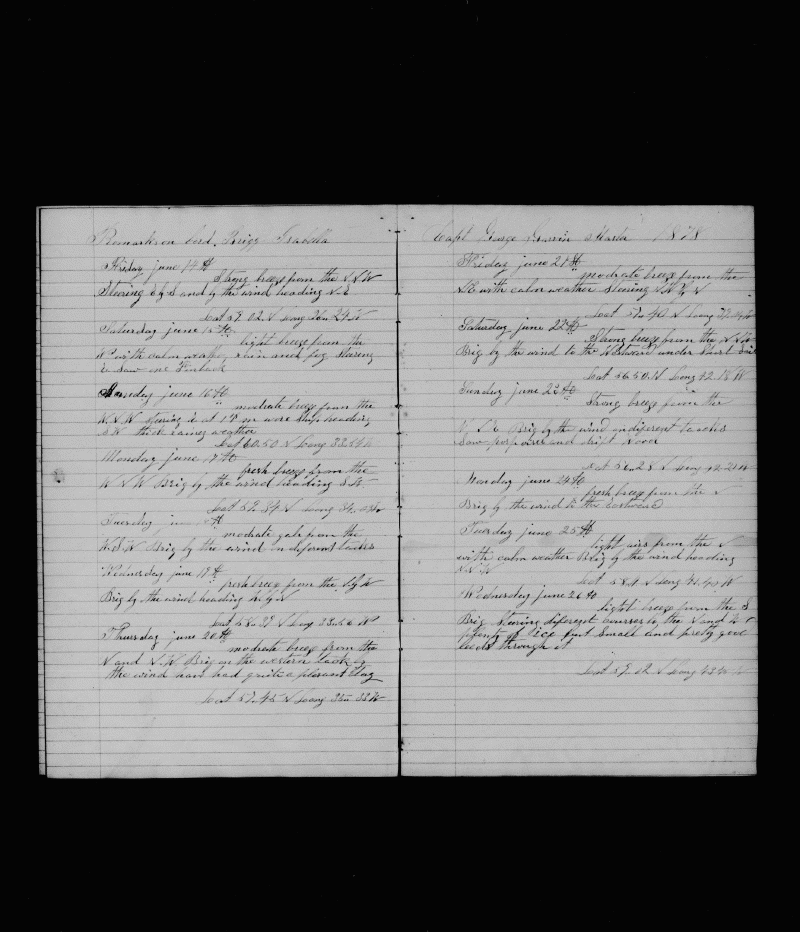 Remarks on bord Brigg Isabella
Friday june 14th
Strong breeze from the N N W
Steering E by S and by the wind heading N E
Lat 59.02 N Long 26 24 W
Saturday june 15th
light breeze from the
W with calm weather rain and fog Steering
Saw one Finback
Sunday june 16th
modrate breeze from the
W.S.W Steering at 1 P m wore Ship heading
S W thick rainy weather
Lat 60.50 N Long
Monday june 17th
fresh breeze from the
W N W Brig by the wind heading S W
Lat 59.34 N Long
Tuesday june 18th
modrate gale from the
W.S.W Brig by the wind on diferent tacks
Wednesday june 19th
fresh breeze from the
Brig by the wind heading W by N
Lat 58.27 N Long
Thursday june 20th
modrate breeze from the
N and N.W Brig on the western tack by
the wind have had quite a plesent day
Lat 57.45 N Long 35 38 W
Capt George Garvin Master 1878
Friday june 21th
modrate breeze from the
S.E with calm weather Steering
Lat 57.40 N Long
Saturday june 22th
Strong breeze from the N N W
Brig by the wind to the Westward under Short Sail
Lat 56.50 N Long 42.18 W
Sunday june 23th
Strong breeze from the
Brig by the wind on diferent tacks
Saw porposes and drift wood
Lat 56.28 N Long 42.21 W
Monday june 24th
fresh breeze from the N
Brig by the wind to the Eastward
Tuesday june 25th
light airs from the N
with calm weather Brig by the wind heading
N N W
Lat 58.4 N Long 41.40 W
Wednesday june 26th
light breeze from the S
Brig Steering diferent courses to the N and W
plenty of ice but Small and pretty good
leeds through it
Lat 59.12 N Long 43 W